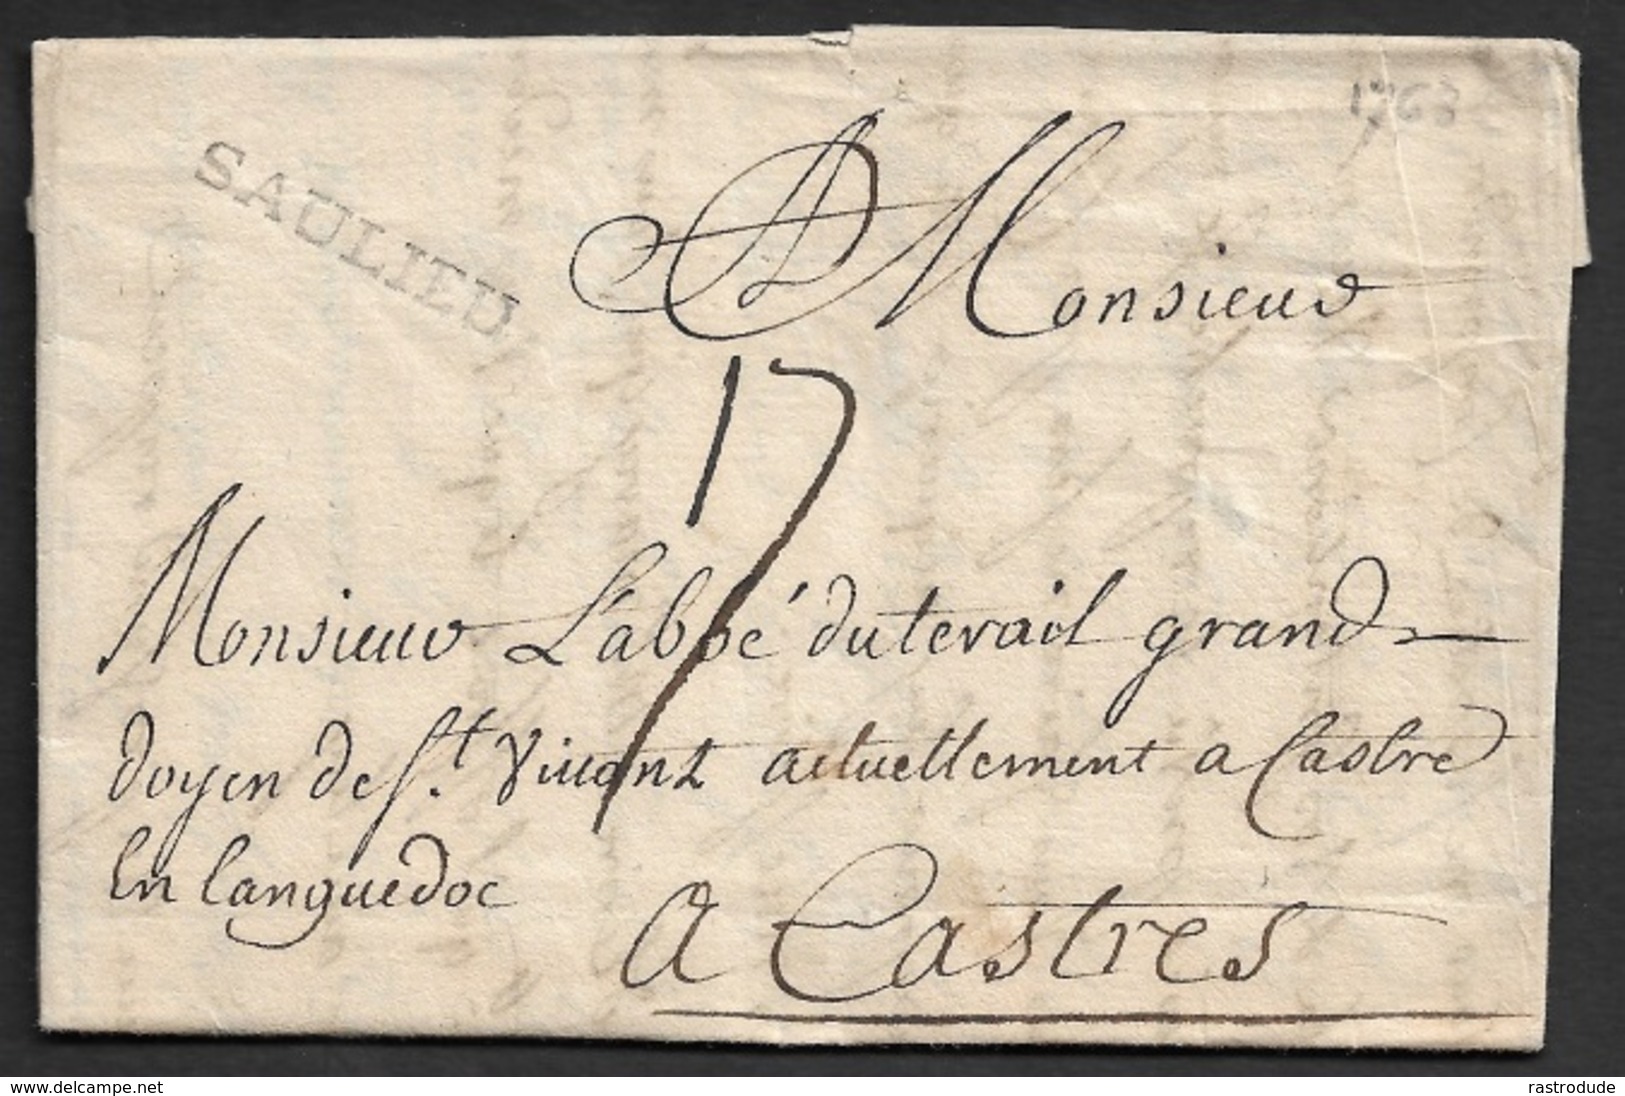 1763
SAULIEU
A Monsieur
17
Monsieur L'abbé duterail grand
doyen de St. Vincent actuellement a Castre
En Languedoc
A Castres
www.delcampe.net
rastrodude